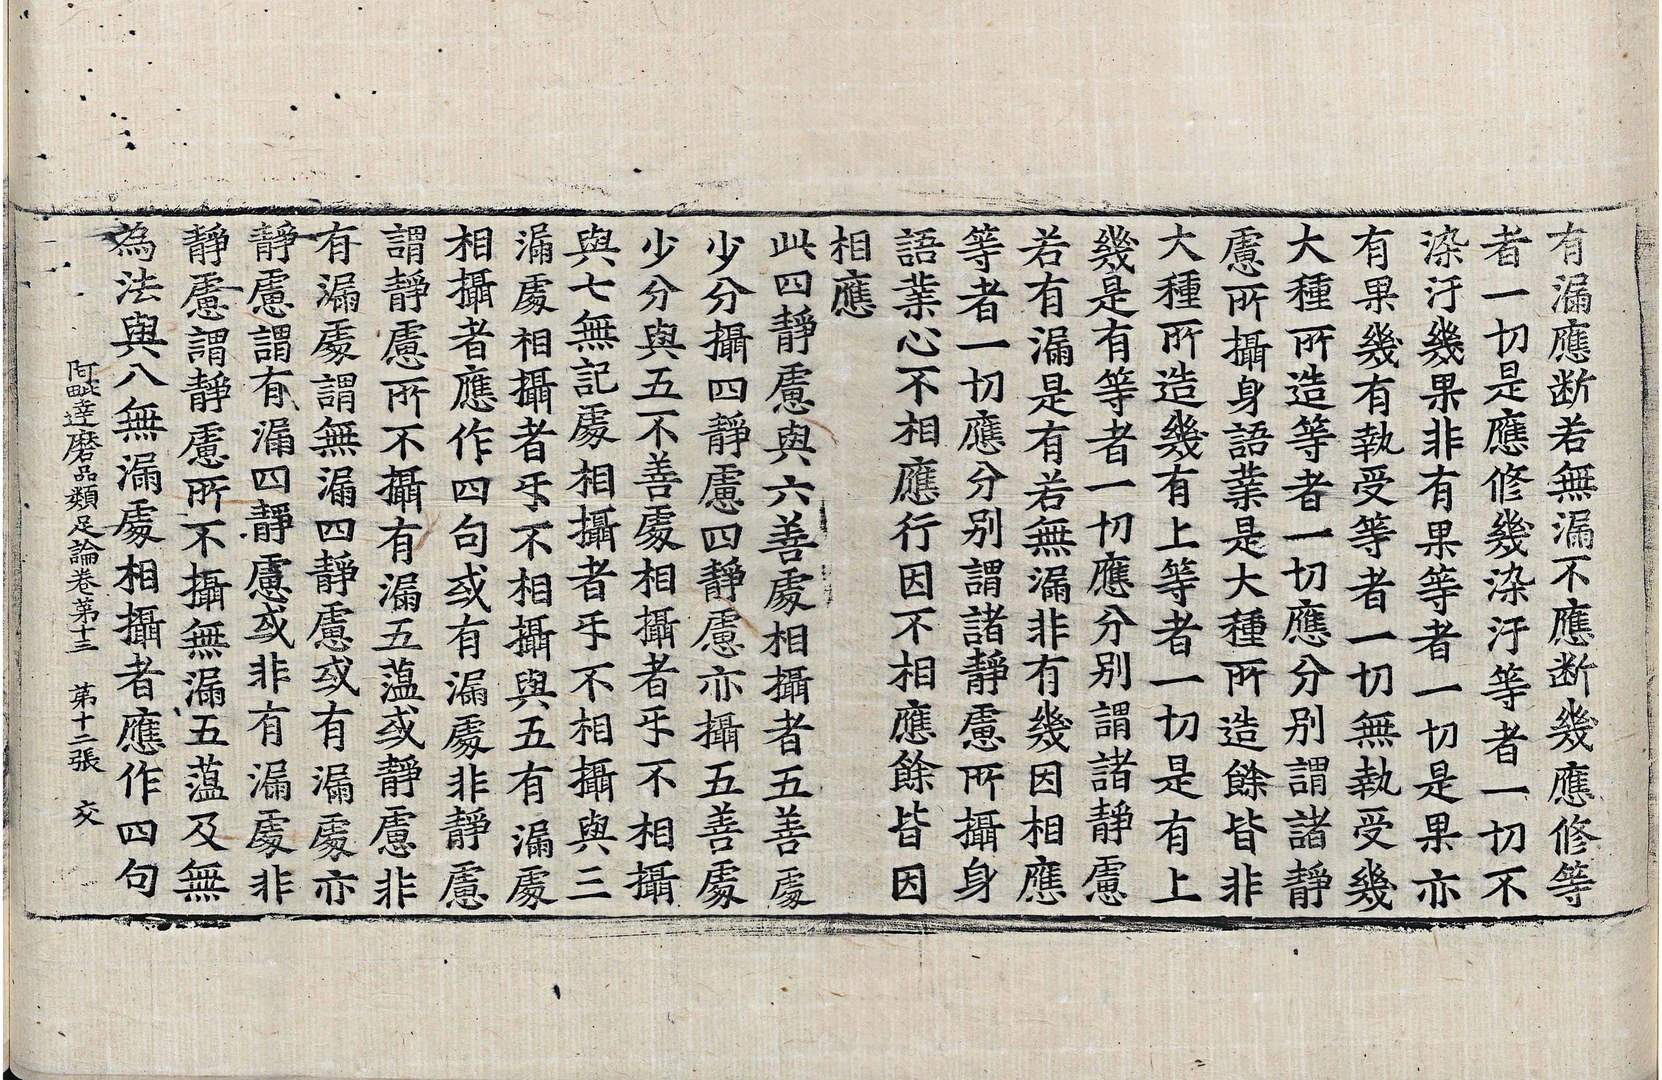 有漏應断若無漏不應断幾應修等
者一切是應修幾染汙等者一切不
染汙幾果非有果等者一切是果亦
有果幾有執受等者一切無執受幾
大種所造等者一切應分别謂諸静
慮所攝身語業是大種所造餘皆非
大種所造幾有上等者一切是有上
幾是有等者一切應分别謂諸静慮
若有漏是有若無漏非有幾因相應
等者一切應分别謂諸静慮所攝身
語業心不相應行因不相應餘皆因
相應
此四静慮與六善處相攝者五善處
少分攝四静慮四静慮亦攝五善處
少分與五不善處相攝者乎不相攝
與七無記處相攝者乎不相攝與三
漏處相攝者乎不相攝與五有漏處
相攝者應作四句或有漏處非静慮
謂静慮所不攝有漏五蕰或静慮非
有漏處謂無漏四静慮或有漏處亦
静慮謂有漏四静慮或非有漏處非
静慮謂静慮所不攝無漏五蕰及無
為法與八無漏處相攝者應作四句
阿毗達磨品類足論卷第十三 第十二張 交